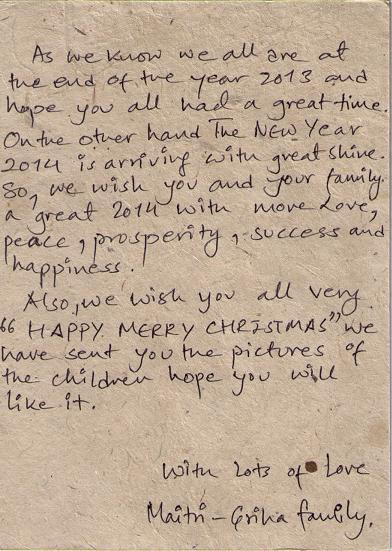 As we know we all are at
the end of the year 2013 and
hope you all had a great time.
On the other hand The NEW Year
2014 is arriving with great shine.
So, we wish you and your family.
a great 2014 with more Love,
peace, prosperity, success and
happiness.
Also, we wish you all very
"HAPPY MERRY CHRISTMAS" we
have sent you the pictures of
the children hope you will
like it.
With Lots of Love
Maitri - Griha family.